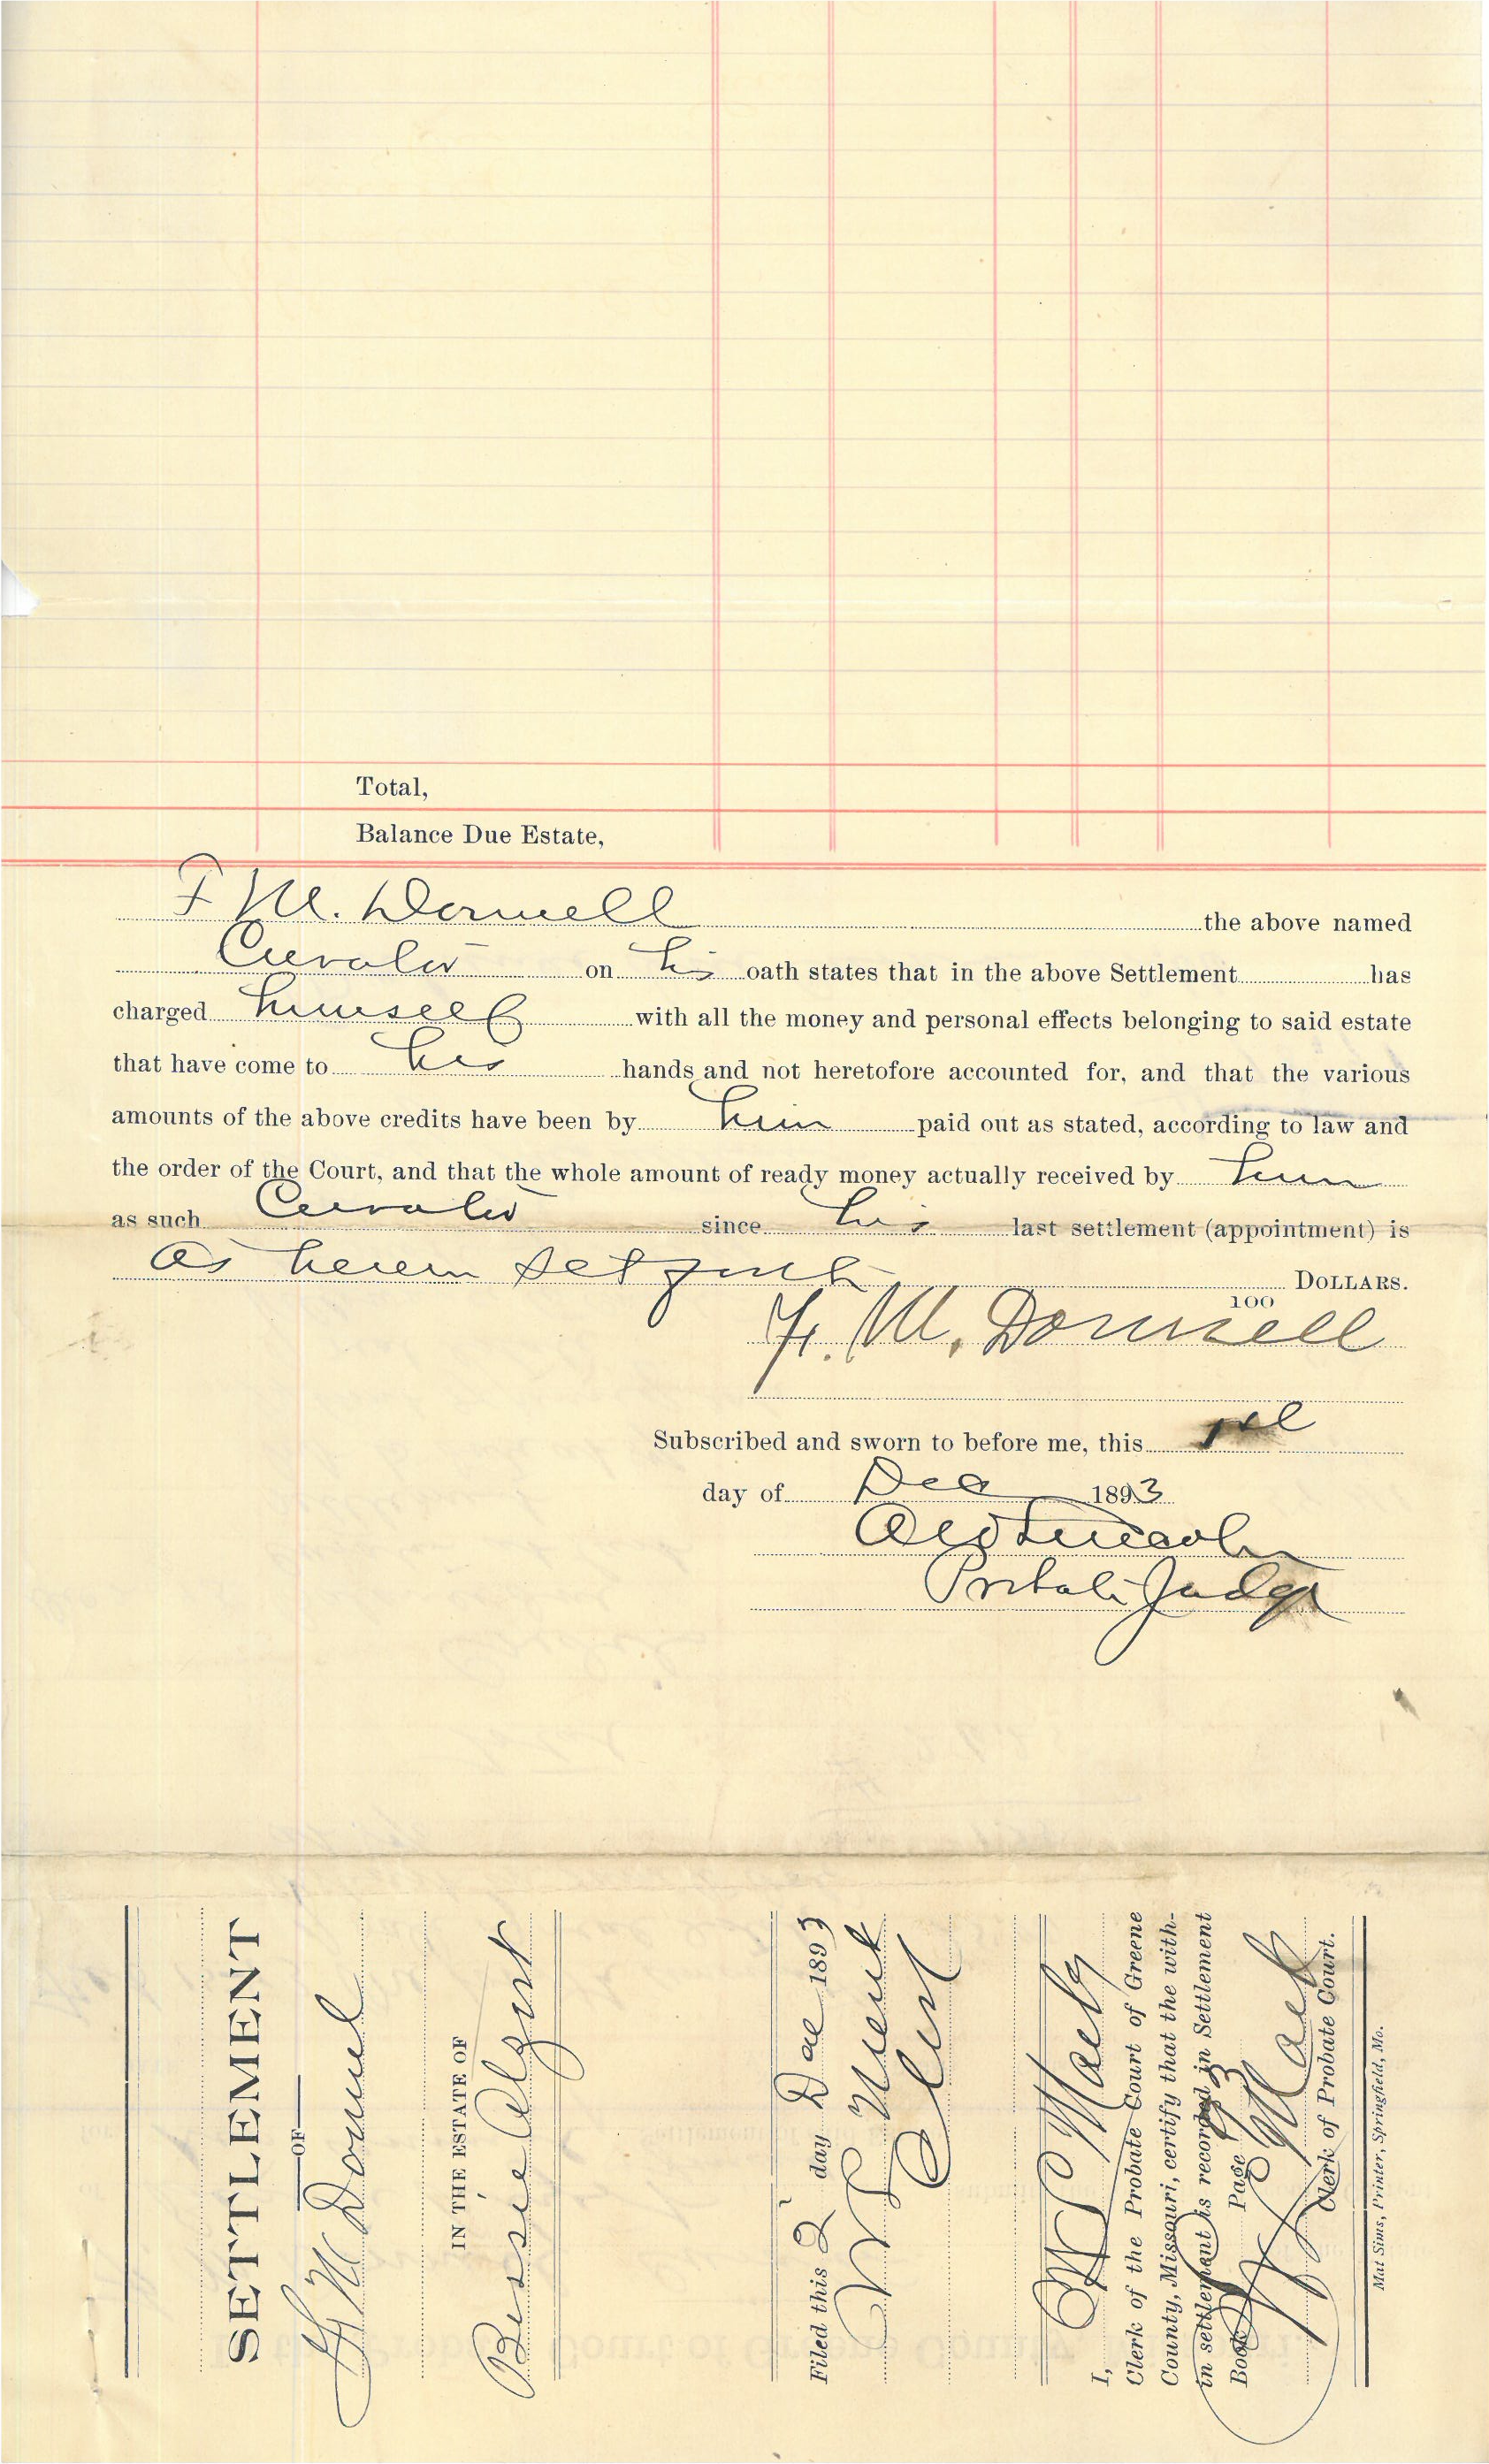 Total,
Balance Due Estate,
F M. Donnell the above named
Curator on his oath states that in the above Settlement has
charged himself with all the money and personal effects belonging to said estate
that have come to his hands and not heretofore accounted for, and that the various
amounts of the above credits have been by him paid out as stated, according to law and
the order of the Court, and that the whole amount of ready money actually received by him
as such Curator since his last settlement (appointment) is
as herein set forth DOLLARS.
100
F. M. Donnell
Subscribed and sworn to before me, this
day of Dec 1893
Probate Judge
SETTLEMENT
OF
F M Donnell
IN THE ESTATE OF
Bessie
Filed this 2 day Dec 1893
Clerk
I,
Clerk of the Probate Court of Greene
County, Missouri, certify that the with-
in settlement is recorded in Settlement
Book Page
Clerk of Probate Court.
Mat Sims, Printer, Springfield, Mo.